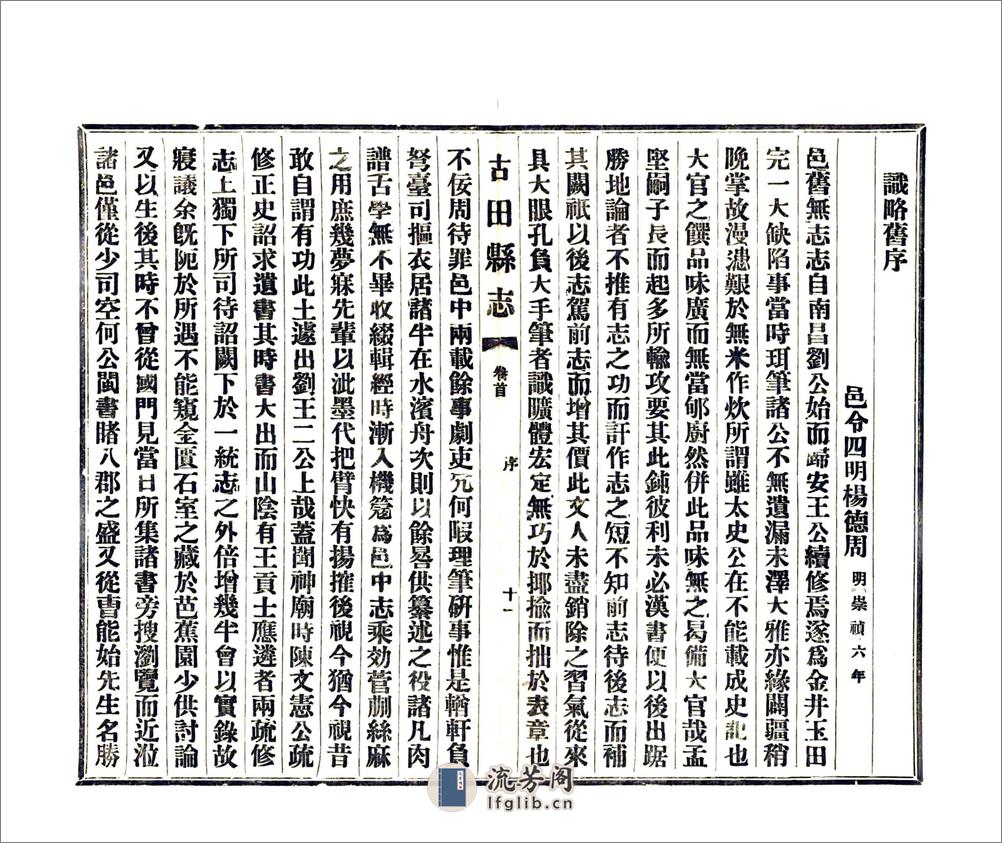 識略舊序
邑令四明楊德周 明崇禎六年
邑舊無志志自南昌劉公始而歸安王公續修焉遂爲金井玉田
完一大缺陷事當時珥筆諸公不無遺漏未澤大雅亦緣闢疆稍
晚掌故漫漶艱於無米作炊所謂雖太史公在不能載成史記也
大官之饌品味廣而無當郇廚然併此品味無之曷備大官哉孟
堅嗣子長而起多所輸攻要其此鈍彼利未必漢書便以後出踞
勝地論者不推有志之功而訐作志之短不知前志待後志而補
其闕祇以後志駕前志而增其價此文人未盡銷除之習氣從來
具大眼孔負大手筆者識曠體宏定無巧於揶揄而拙於表章也
古田縣志 卷首 序 十一
不佞周待罪邑中兩載餘事劇吏冗何暇理筆研事惟是輶軒負
弩臺司摳衣居諸半在水濱舟次則以餘晷供纂述之役諸凡肉
譜舌學無不畢收綴輯經時漸入機窽爲邑中志乘効菅蒯絲麻
之用庶幾夢寐先輩以泚墨代把臂快有揚搉後視今猶今視昔
敢自謂有功此土遽出劉王二公上哉蓋聞神廟時陳文憲公疏
修正史詔求遺書其時書大出而山陰有王貢士應遴者兩疏修
志上獨下所司待詔闕下於一統志之外倍增幾半曾以實錄故
寢議余旣阨於所遇不能窺金匱石室之藏於芭蕉園少供討論
又以生後其時不曾從國門見當日所集諸書旁搜瀏覽而近涖
諸邑僅從少司空何公閩書睹八郡之盛又從曹能始先生名勝
流芳阁
lfglib.cn